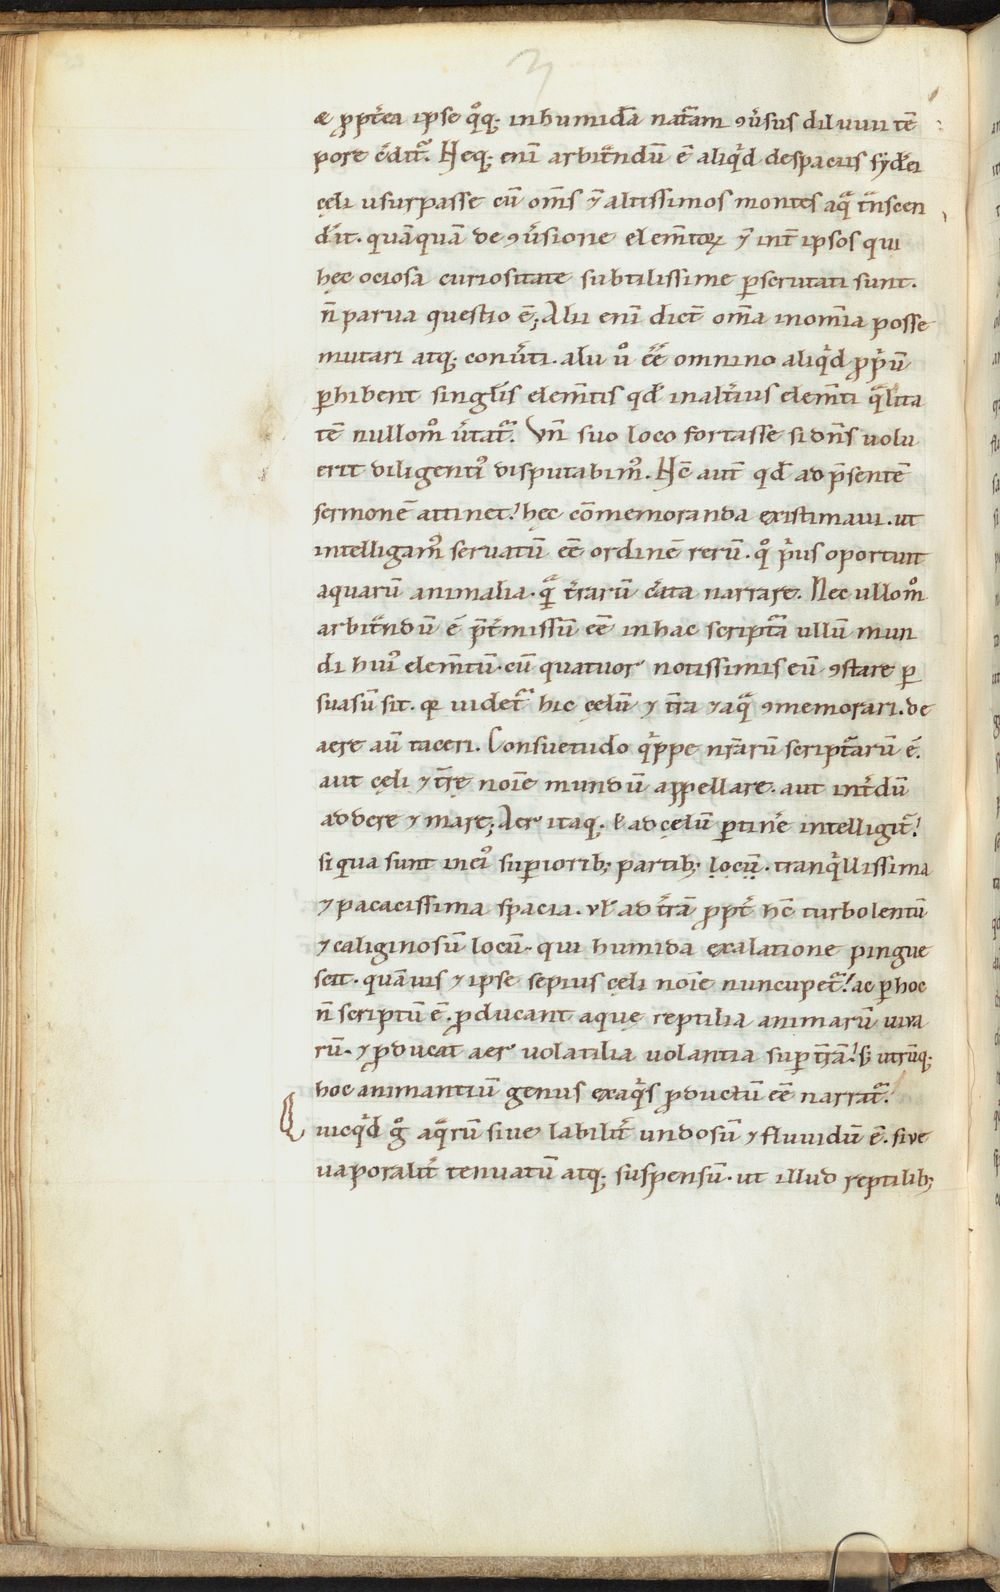 æ ꝓpt̃ea ipse q̊q; in humidã nat̃am ꝯũsus diluuii tẽ
pore c̃dit᷑. Neq; enĩ arbit̃ndũ ẽ aliqͥd de spaciis syd̃ei
cęli usurpasse cũ om̃s ⁊ altissimos montes aqͣ tͣnscen
d̃it. quãquã de ꝯũsione elem̃toꝝ ⁊ int̃ ipsos qui
hęc ociosa curiositate subtilissime ꝑscrutati sunt.
ñ parua questio ẽ; Alii enĩ dic̃t om̃a in om̃ia posse
mutari atq; conũti. alii ů ẽẽ omnino aliqͥd ꝓpͥũ
ꝑhibent singl̃is elem̃tis qđ in alt̃ius elem̃ti qͣlita
tẽ nullom̊ ũtat᷑. Vñ suo loco fortasse si dñs uolu
erit diligentꝰ disputabimꝰ. Hc̃ aut̃ qđ ad p̃sentẽ
sermonẽ attinet! hęc cõmemoranda existimaui. ut
intelligamꝰ seruatũ eẽ ordinẽ rerũ. q̊ pͥus oportuit
aquarũ animalia. qͣ̃ t̃rarũ c̃ata narrare. Nec ullom̊
arbit̃ndũ ẽ p̃t̃missũ eẽ in hac script̃a ullũ mun
di huiꝰ elem̃tũ. cũ quatuor notissimis eũ ꝯstare ꝑ
suasũ sit. qꝛ uidet᷑ hic cęlũ ⁊ tr̃a ⁊ aqͣ ꝯmemorari. de
aere aũ taceri. Consuetudo qͥppe nr̃arũ script̃arũ ẽ.
aut cęli ⁊ tr̃ę noĩe mundũ appellare. aut int̃dũ
addere ⁊ mare; Aer itaq; ł ad cęlũ ꝑtinẽ intelligit᷑!
si qua sunt in eiꝰ suꝑiorib; partib; locũ. tranqͥllissima
⁊ pacacissima spacia. uł ad t̃rã ꝓpt̃ hc̃ turbolentũ
⁊ caliginosũ locũ. qui humida exalatione pingue
scit. quãuis ⁊ ipse sepius cęli noĩe nuncupet᷑! ac ꝑ hoc
ñ scriptũ ẽ. ꝓducant aquę reptilia animarũ uiua
rũ. ⁊ ꝓducat aer uolatilia uolantia suꝑ tr̃ã! s; utrũq;
hoc animantiũ genus ex aqͥs ꝓductũ eẽ narrat᷑.
Quicqͥd g̊ aqͣrũ siue labilit̃ undosũ ⁊ fluuidũ ẽ. siue
uaporalit̃ tenuatũ atq; suspensũ. ut illud reptilib;